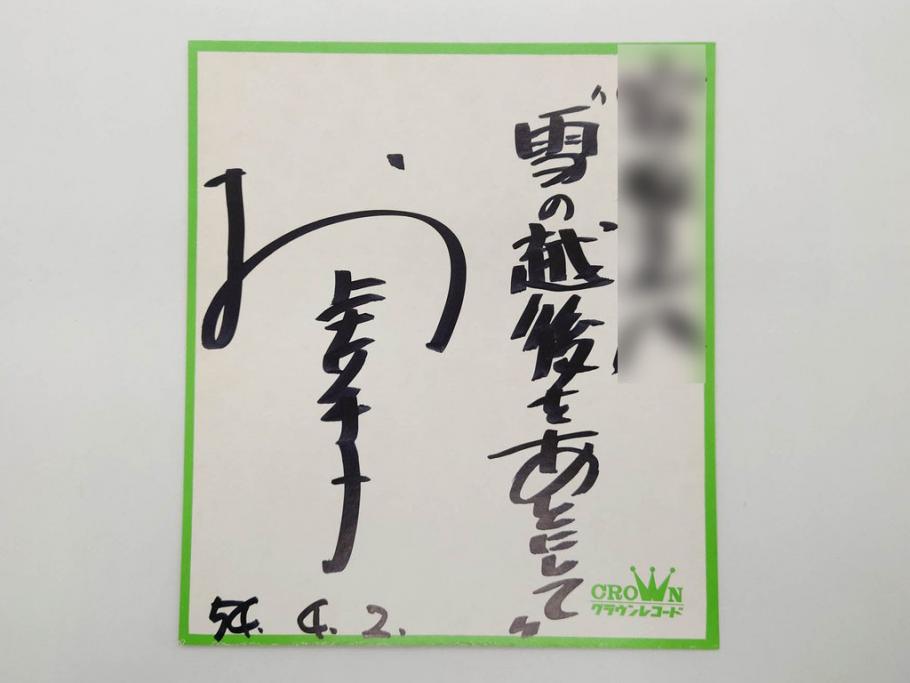 "雪の越後をあとにして"
54. 4. 2.
CROWN
クラウンレコード